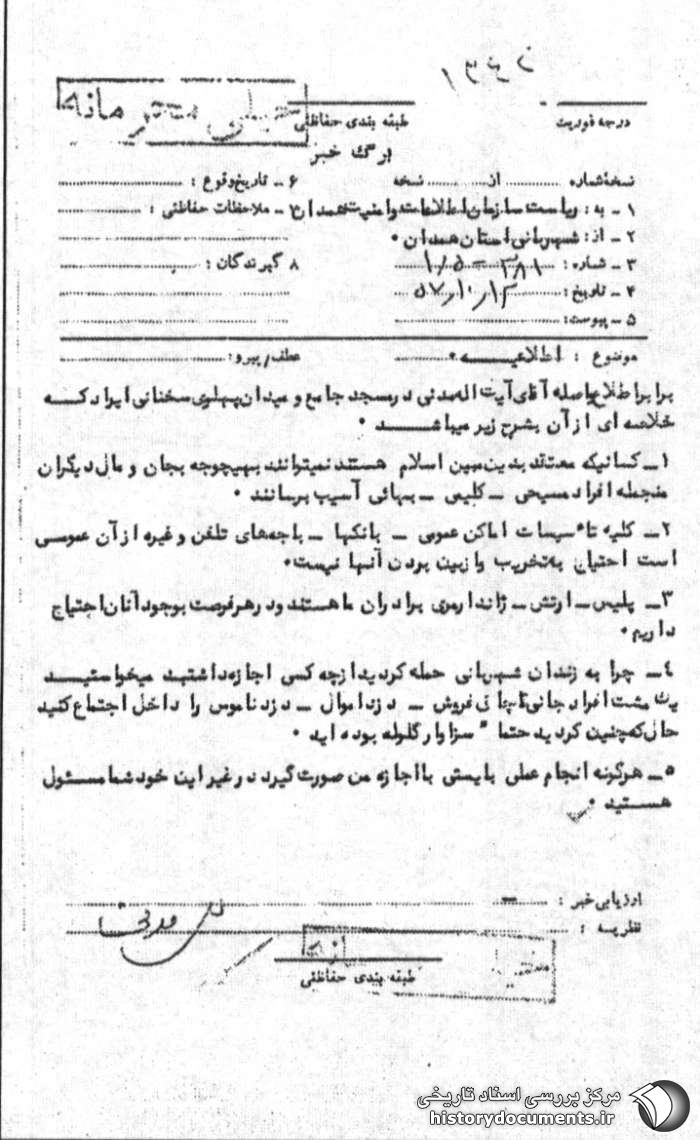 خیلی محرمانه
درجه فوریت
طبقه بندی حفاظتی
برگ خبر
نسخه شماره ........ از ........ نسخه
۶ - تاریخ وقوع :
۱ - به : ریاست سازمان اطلاعات و امنیت همدان
۷ - ملاحظات حفاظتی :
۲ - از : شهربانی استان همدان .
۳ - شماره : ۳۸۱ - ۱/۵
۸ گیرندگان :
۴ - تاریخ : ۵۷/۱۰/۱۲
۵ - پیوست :
موضوع : اطلاعیه .
عطف/پیرو :
برابر اطلاع واصله آقای آیت اله مدنی در مسجد جامع و میدان پهلوی سخنانی ایراد که
خلاصه ای از آن بشرح زیر میباشد .
۱ - کسانیکه معتقد بدین مبین اسلام هستند نمیتوانند بهیچوجه بجان و مال دیگران
منجمله افراد مسیحی - کلیمی - بهائی آسیب برسانند .
۲ - کلیه تاءسیسات اماکن عمومی - بانکها - باجه های تلفن و غیره از آن عمومی
است احتیاج به تخریب و ازبین بردن آنها نیست .
۳ - پلیس - ارتش - ژاندارمری برادران ما هستند و در هر فرصت بوجود آنان احتیاج
داریم .
٤ - چرا به زندان شهربانی حمله کردید از چه کسی اجازه داشتید میخواستید
یک مشت افراد جانی قاچاق فروش - دزد اموال - دزد ناموس را داخل اجتماع کنید
حال که چنین کردید حتما " سزاوار گلوله بوده اید .
۵ - هرگونه انجام عملی بایستی با اجازه من صورت گیرد در غیر این خود شما مسئول
هستید .
ارزیابی خبر : -
نظریه :
طبقه بندی حفاظتی
مرکز بررسی اسناد تاریخی
historydocuments.ir